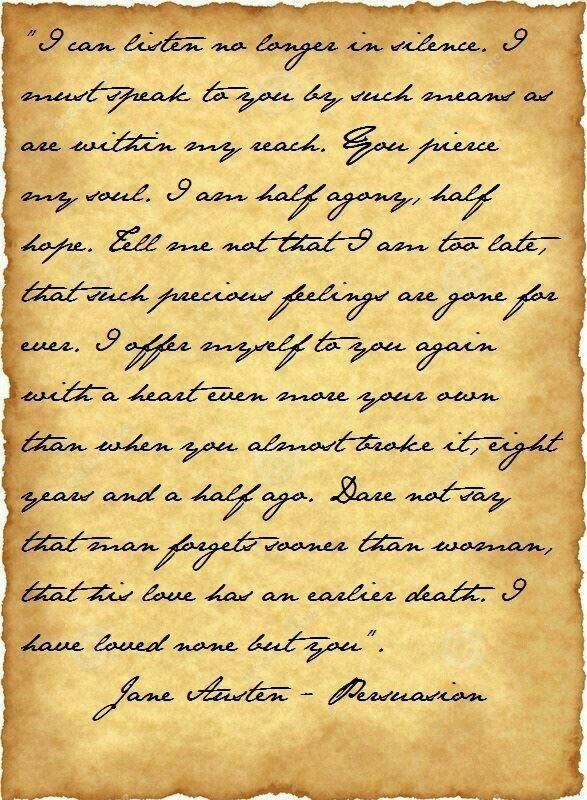 "I can listen no longer in silence. I
must speak to you by such means as
are within my reach. You pierce
my soul. I am half agony, half
hope. Tell me not that I am too late,
that such precious feelings are gone for
ever. I offer myself to you again
with a heart even more your own
than when you almost broke it, eight
years and a half ago. Dare not say
that man forgets sooner than woman,
that his love has an earlier death. I
have loved none but you".
Jane Austen - Persuasion